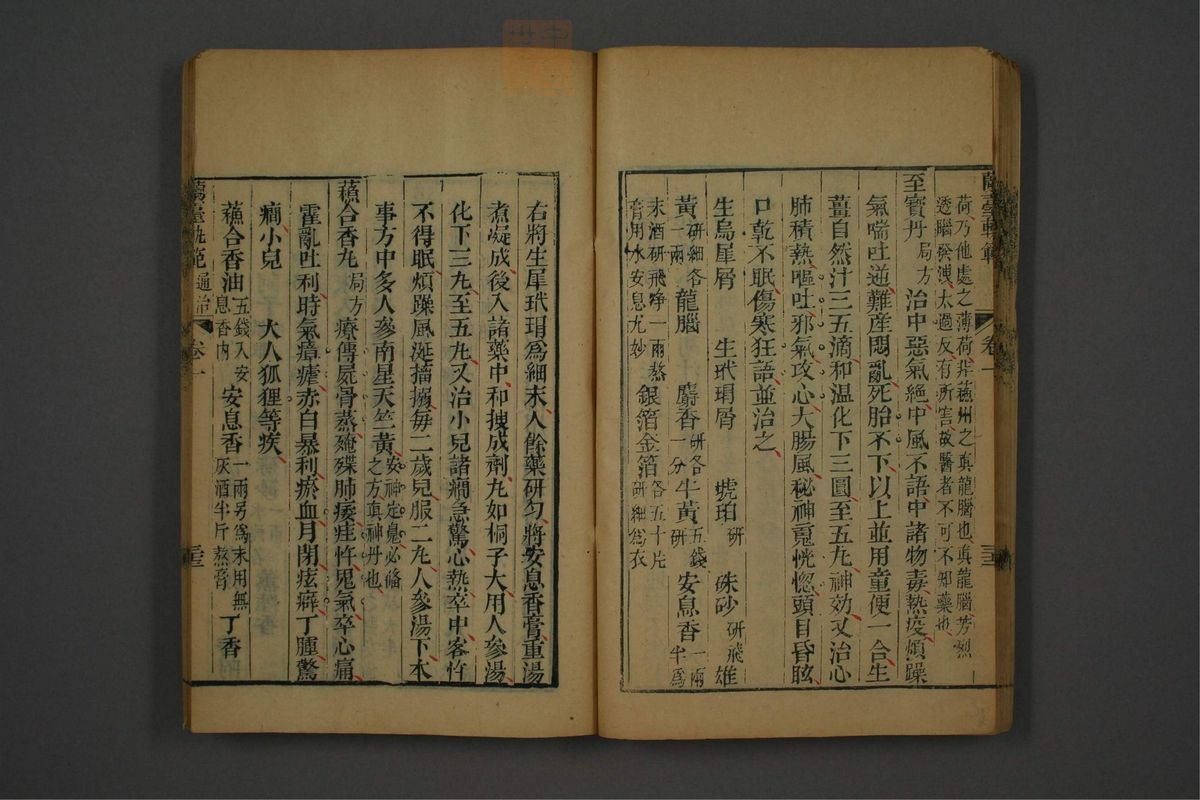 蘭臺軌範 卷一 三三
荷乃他處之薄荷非蘓州之真龍腦也真龍腦芳烈
透腦發洩太過反有所害故醫者不可不知藥也
至寶丹局方治中惡氣絶中風不語中諸物毒熱疫煩躁
氣喘吐逆難産悶亂死胎不下以上並用童便一合生
薑自然汁三五滴和温化下三圓至五丸神効又治心
肺積熱嘔吐邪氣攻心大腸風秘神䰟恍惚頭目昏眩
口乾不眠傷寒狂語並治之
生烏犀屑 生玳瑁屑 琥珀研 硃砂研飛雄
黃研細各一兩龍腦 麝香研各一分牛黃五錢研安息香一兩半為
末酒研飛淨一兩熬膏用水安息尤妙銀箔金箔各五十片研細為衣
右將生犀玳瑁為細末入餘藥研勻將安息香膏重湯
煮凝成後入諸藥中和搜成劑丸如桐子大用人參湯
化下三丸至五丸又治小兒諸癇急驚心熱卒中客忤
不得眠煩躁風涎搐搦每二歲兒服二丸人參湯下本
事方中多人參南星天竺黃安神定䰟必備之方真神丹也
蘓合香丸局方療傳屍骨蒸殗殜肺痿疰忤鬼氣卒心痛
霍亂吐利時氣瘴瘧赤白暴利瘀血月閉痃癖丁腫驚
癇小兒 大人狐狸等疾
蘓合香油五錢入安息香內安息香一兩另為末用無灰酒半斤熬膏丁香
蘭臺軌範 通治 卷一 三三